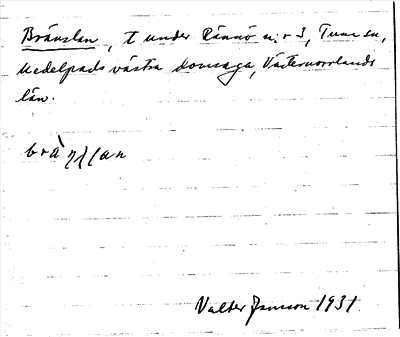 Bränslan, t under Rännö nr 3, Tuna sn,
Medelpads västra domsaga, Västernorrlands
län.
Valter Jansson 1931.